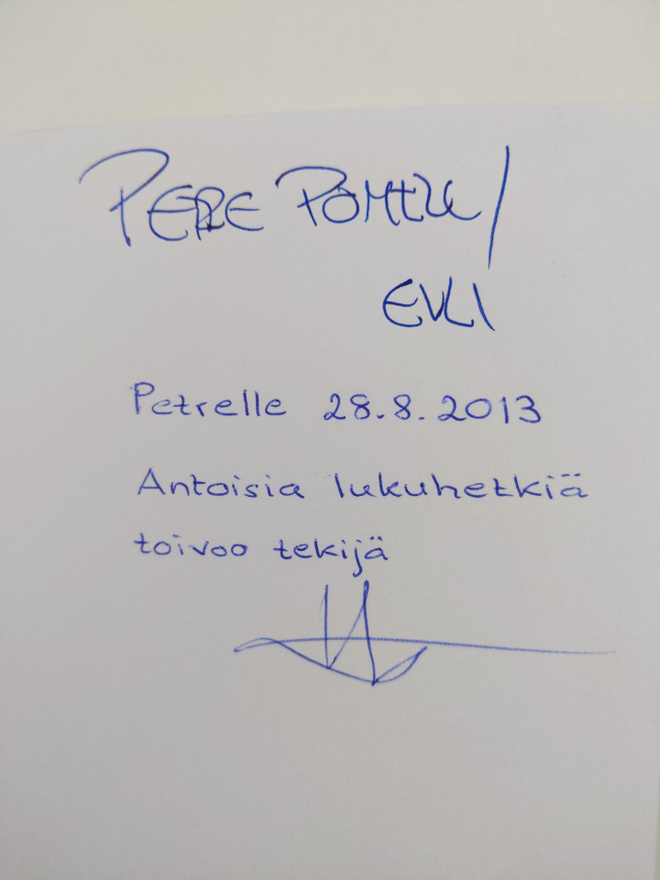 PERE
EVLI
Petrelle 28.8.2013
Antoisia lukuhetkiä
toivoo tekijä